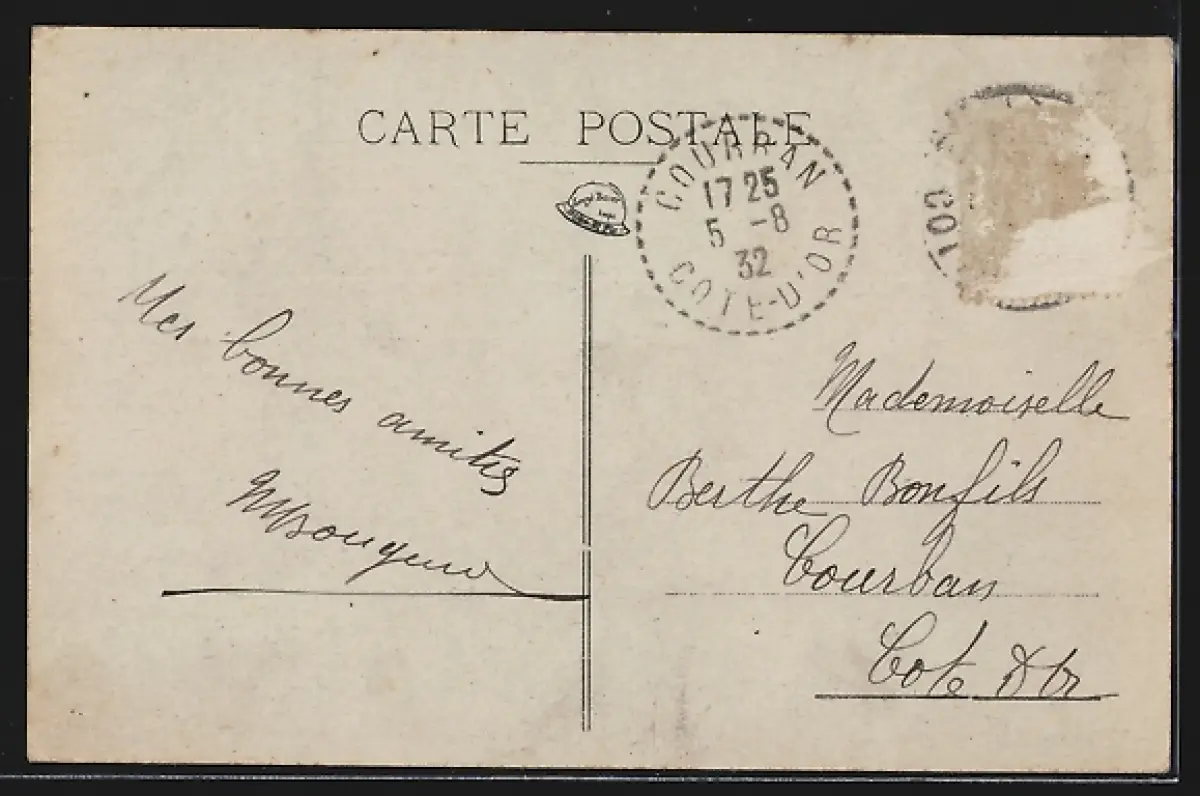 CARTE POSTALE
COURBAN
17 25
5 -8
32
COTE-D'OR
COT
Mes bonnes amitiés
Mademoiselle
Berthe Bonfils
Courban
Cote D'Or